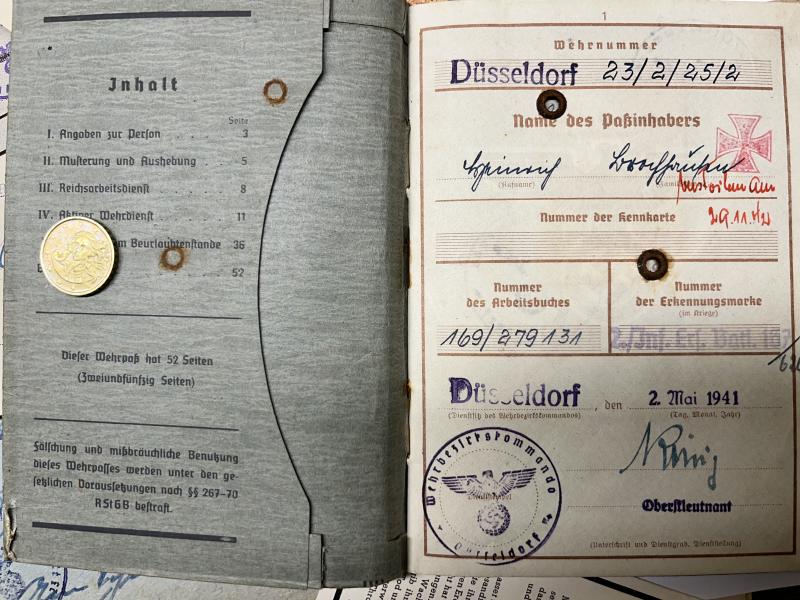 Inhalt
Seite
I. Angaben zur Person . . . 3
II. Musterung und Aushebung . . 5
III. Reichsarbeitsdienst . . . 8
IV. Aktiver Wehrdienst . . . 11
Beurlaubtenstande 36
52
Dieser Wehrpaß hat 52 Seiten
(Zweiundfünfzig Seiten)
Fälschung und mißbräuchliche Benutzung
dieses Wehrpasses werden unter den ge-
setzlichen Voraussetzungen nach §§ 267–70
RStGB bestraft.
1
Wehrnummer
Düsseldorf 23/2/25/2
Name des Paßinhabers
Heinrich Brochhausen
(Rufname)
verstorben am
29.11.42
Nummer der Kennkarte
Nummer
des Arbeitsbuches
169/279131
Nummer
der Erkennungsmarke
(im Kriege)
2./Inf. Ers. Batl.
Düsseldorf, den 2. Mai 1941
(Dienstsitz des Wehrbezirkskommandos)
(Tag, Monat, Jahr)
Wehrbezirkskommando
Düsseldorf
Oberstleutnant
(Unterschrift und Dienstgrad, Dienststellung)